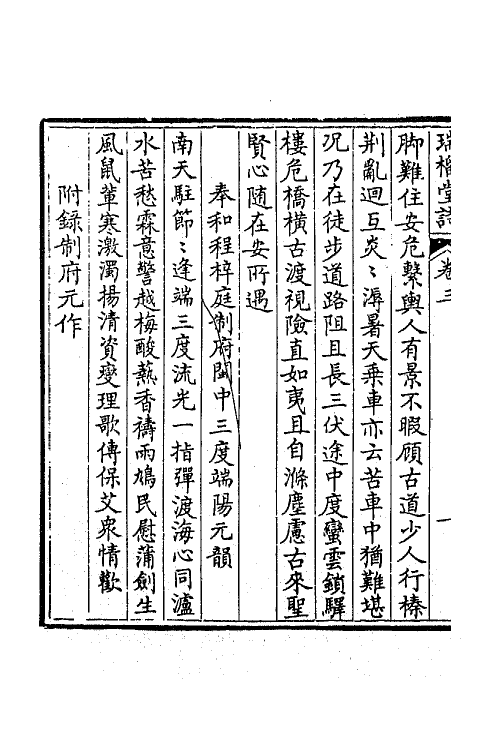 瑞榴堂詩 卷三 一
脚難住安危繫輿人有景不暇顧古道少人行榛
荆亂迴互炎〻溽暑天乗車亦云苦車中猶難堪
况乃在徒步道路阻且長三伏途中度蠻雲鎖驛
樓危橋横古渡視險直如夷且自滌塵慮古來聖
賢心随在安所遇
奉和程梓庭制府閩中三度端陽元韻
南天駐節〻逢端三度流光一指彈渡海心同瀘
水苦愁霖意警越梅酸爇香禱雨鳩民慰蒲劍生
風鼠輩寒激濁揚清資燮理歌傳保艾衆情歡
附録制府元作